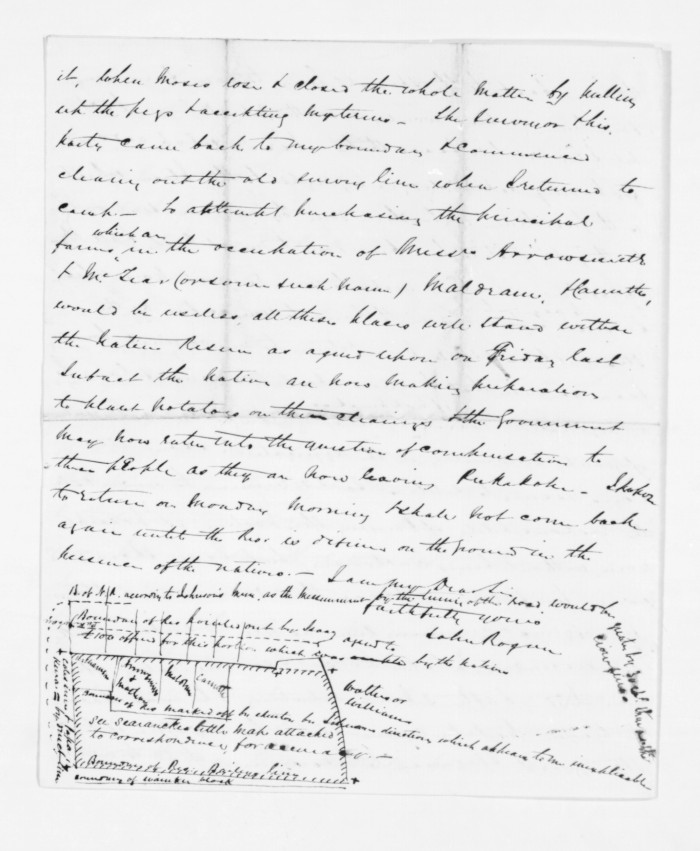 it, when Moses rose & closed the whole matter by pulling
up the pegs & accepting my terms – The Surveyor & his
party came back to my boundary & commenced
clearing out the old survey line when I returned to
camp – To attempt purchasing the principal
farms which are in the occupation of Messrs Arrowsmith
& McLear (or some such name) Maldram,
would be useless, all these places will stand within
the Native Reserve as agreed upon on Friday last
In fact the natives are now making preparation
to plant potatoes on these clearings & the Government
may now enter into the question of compensation to
these people as they are now leaving Pukekohe – I hope
to return on Monday Morning & shall not come back
again until the Res is defined on the ground in the
presence of the natives. – I am my Dear Sir
B. of N.R. according to Johnson's line, as the measurement by the turns of the road, would be
faithfully yours
John Rogan
Boundary of Res pointed out by Isaac agreed to
£100 offered for this portion which was by the natives
Arrowsmith
&
Maldram
Garrett
Walters or
Williams
Boundary of Res marked off by by Johnson's direction which appears to me inexplicable
see separate little map attached
to correspondence for accuracy –
Boundary of
boundary of Waiuku block